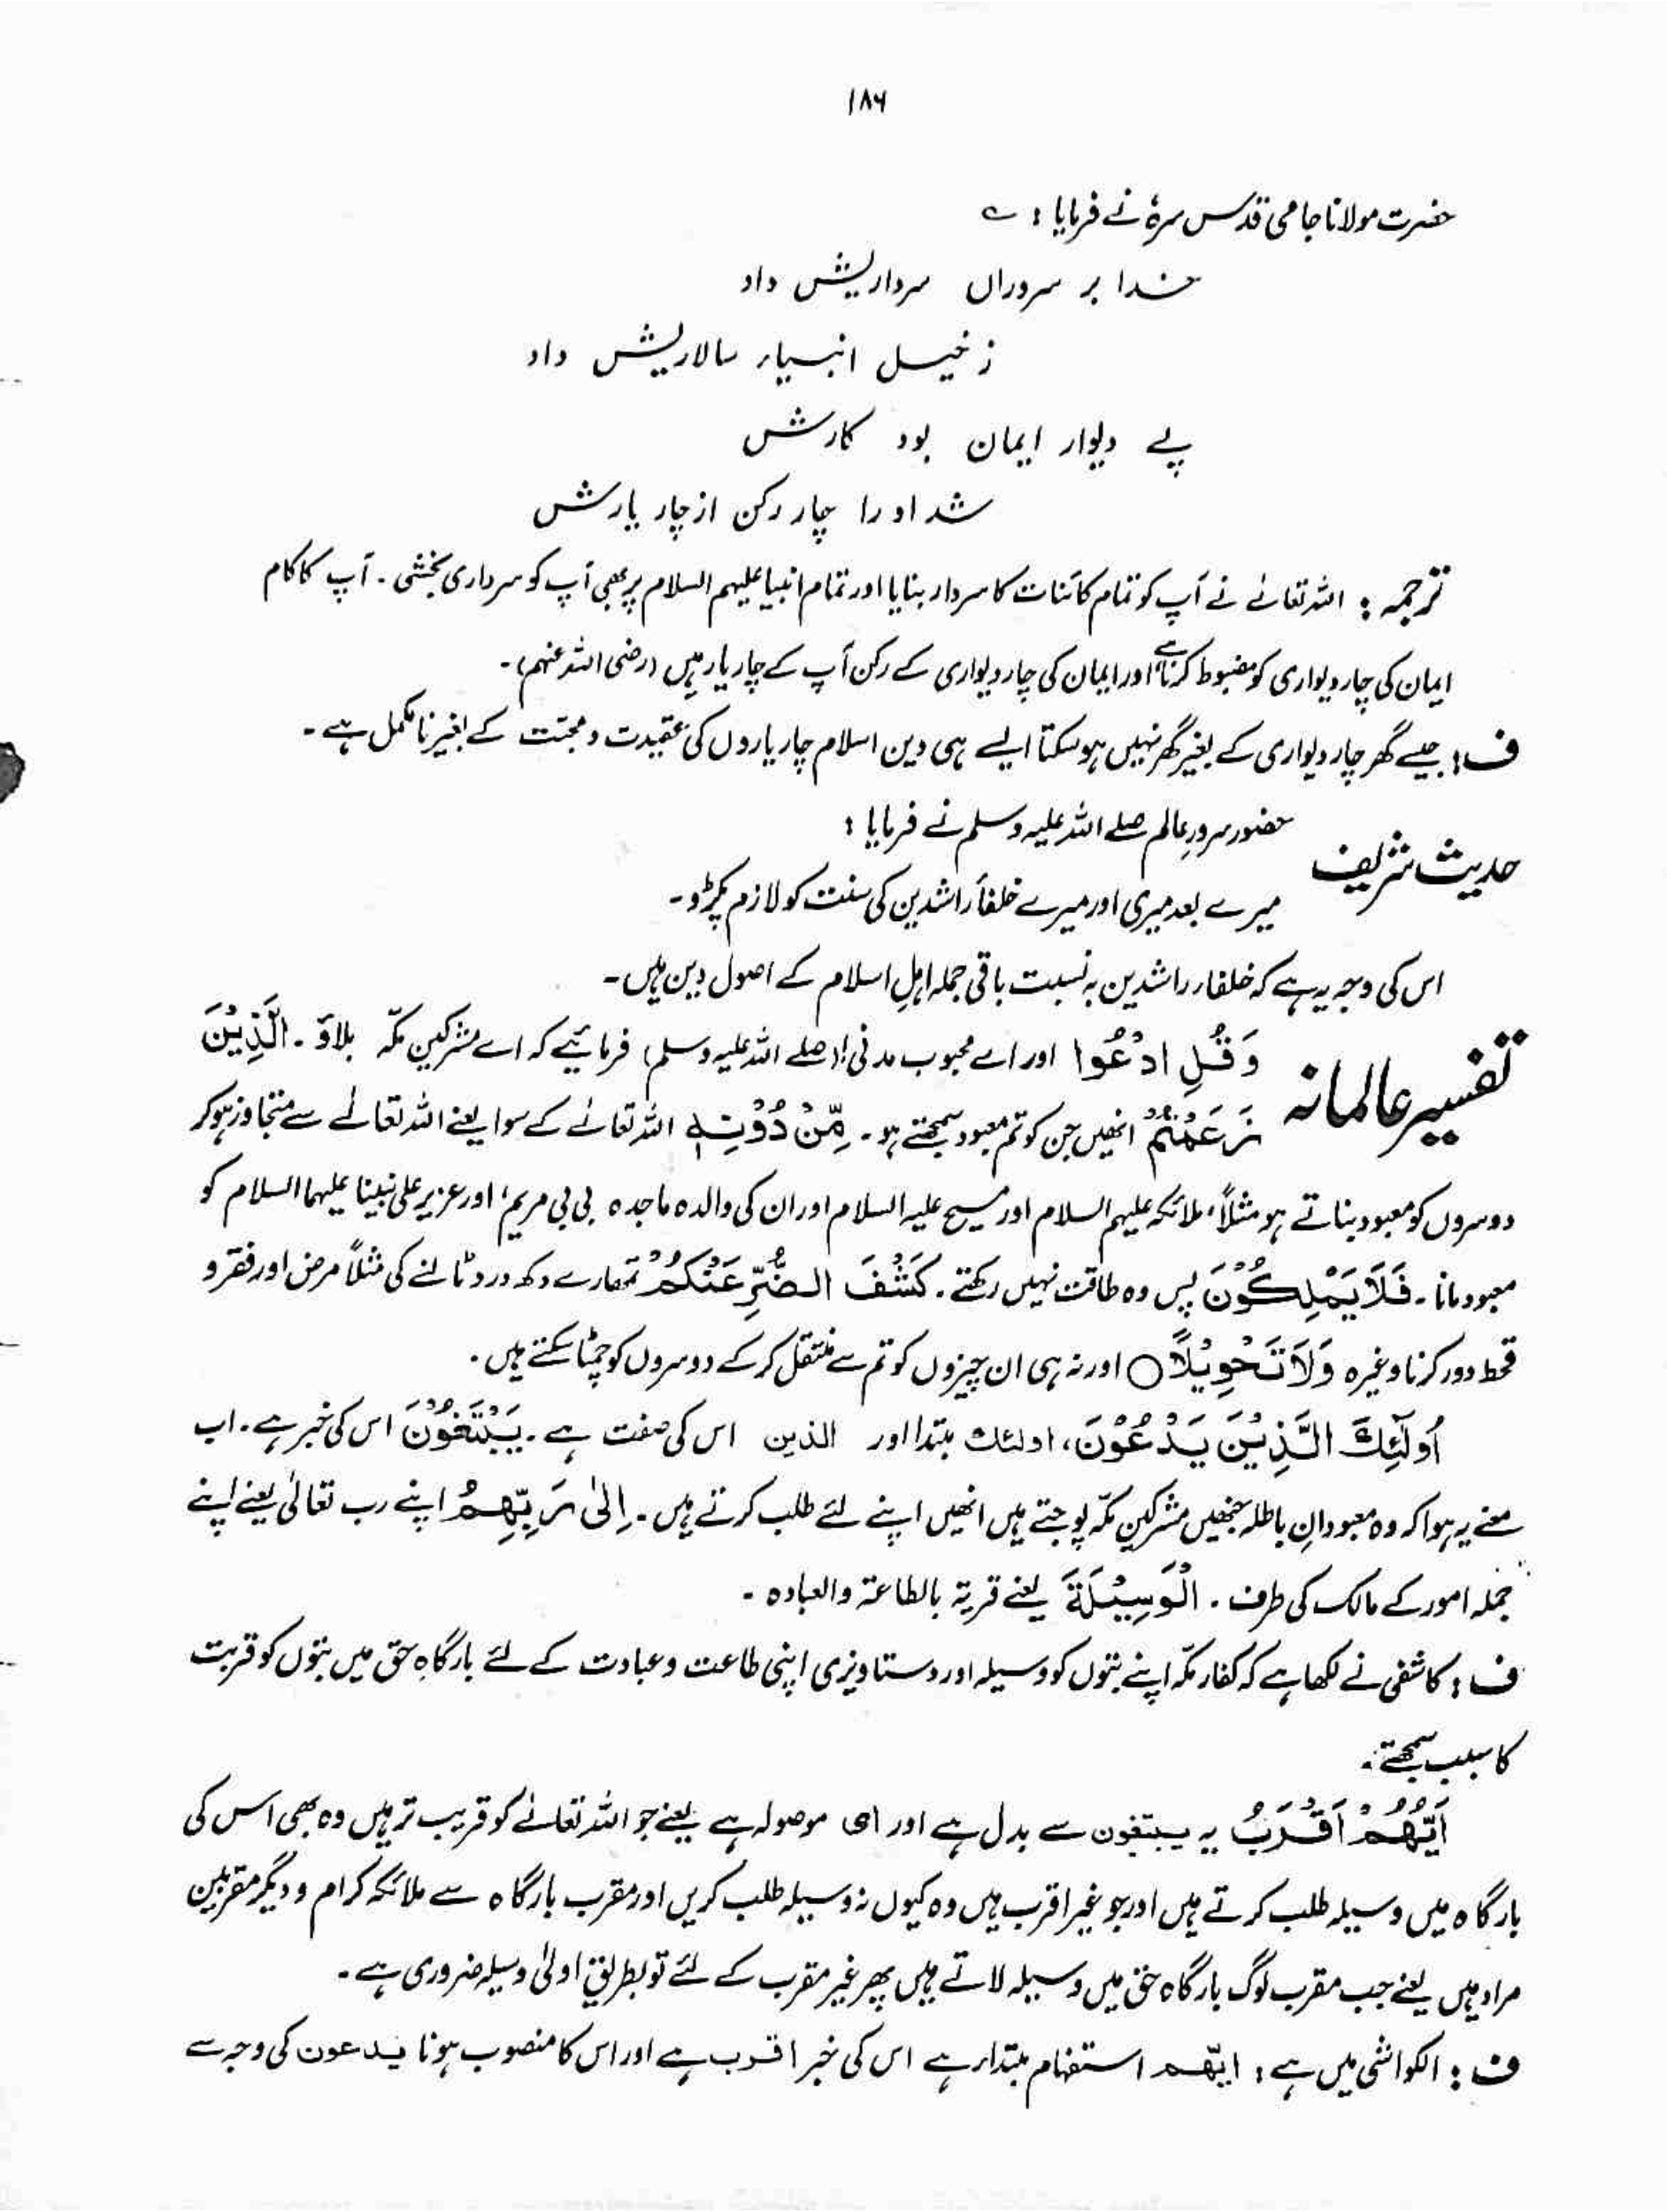 ۱۸۶
حضرت مولانا جامی قدس سرہٗ نے فرمایا : ؎
خدا بر سروراں سرداریش داد
ز خیل انبیاء سالاریش داد
پے دیوار ایمان بود کارش
شد او را چار رکن از چار یارش
ترجمہ : اللہ تعالےٰ نے آپ کو تمام کائنات کا سردار بنایا اور تمام انبیا علیہم السلام پر بھی آپ کو سرداری بخشی ۔ آپ کا کام
ایمان کی چار دیواری کو مضبوط کرنا ہے اور ایمان کی چار دیواری کے رکن آپ کے چار یار ہیں (رضی اللہ عنہم) ۔
ف : جیسے گھر چار دیواری کے بغیر گھر نہیں ہو سکتا ایسے ہی دین اسلام چار یاروں کی عقیدت و محبت کے بغیر نامکمل ہے ۔
حضور سرورِ عالم صلے اللہ علیہ وسلم نے فرمایا :
حدیث شریف
میرے بعد میری اور میرے خلفاً راشدین کی سنت کو لازم پکڑو ۔
اس کی وجہ یہ ہے کہ خلفاء راشدین بہ نسبت باقی جملہ اہلِ اسلام کے اصول دین ہیں ۔
تفسیر عالمانہ وَ قُلِ ادْعُوا اور اے محبوب مدنی! (صلے اللہ علیہ وسلم) فرمائیے کہ اے مشرکینِ مکہّ بلاؤ ۔ الَّذِیْنَ
زَعَمْتُمْ انھیں جن کو تم معبود سمجھتے ہو ۔ مِّنْ دُوْنِہٖ اللہ تعالےٰ کے سوا یعنے اللہ تعالےٰ سے متجاوز ہو کر
دوسروں کو معبود بناتے ہو مثلاً ملائکہ علیہم السلام اور مسیح علیہ السلام اور ان کی والدہ ماجدہ بی بی مریم ؑ اور عزیر علی نبینا علیہما السلام کو
معبود مانا ۔ فَلَا یَمْلِکُوْنَ پس وہ طاقت نہیں رکھتے ۔ کَشْفَ الضُّرِّ عَنْکُمْ تمھارے دکھ درد ٹالنے کی مثلاً مرض اور فقر و
قحط دور کرنا وغیرہ وَ لَا تَحْوِیْلًا ○ اور نہ ہی ان چیزوں کو تم سے منتقل کر کے دوسروں کو چمٹا سکتے ہیں ۔
اُولٰٓئِکَ الَّذِیْنَ یَدْعُوْنَ، اولئک مبتدا اور الذین اس کی صفت ہے ۔ یَبْتَغُوْنَ اس کی خبر ہے ۔ اب
معنے یہ ہوا کہ وہ معبودانِ باطلہ جنھیں مشرکین مکہّ پوجتے ہیں انھیں اپنے لئے طلب کرتے ہیں ۔ اِلیٰ رَبِّھِمُ اپنے رب تعالیٰ یعنے اپنے
جملہ امور کے مالک کی طرف ۔ الْوَسِیْلَۃَ یعنے قربۃ بالطاعۃ والعبادہ ۔
ف : کاشفی نے لکھا ہے کہ کفار مکہّ اپنے بتوں کو وسیلہ اور دستاویزی اپنی طاعت و عبادت کے لئے بارگاہِ حق میں بتوں کو قربت
کا سبب سمجھتے ۔
اَیُّھُمْ اَقْرَبُ یہ یبتغون سے بدل ہے اور ای موصولہ ہے یعنے جو اللہ تعالےٰ کو قریب تر ہیں وہ بھی اس کی
بارگاہ میں وسیلہ طلب کرتے ہیں اور جو غیر اقرب ہیں وہ کیوں نہ وسیلہ طلب کریں اور مقرب بارگاہ سے ملائکہ کرام و دیگر مقربین
مراد ہیں یعنے جب مقرب لوگ بارگاہ حق میں وسیلہ لاتے ہیں پھر غیر مقرب کے لئے تو بطریقِ اولیٰ وسیلہ ضروری ہے ۔
ف : الکواشی میں ہے : ایّھم استفہام مبتدا ہے اس کی خبر اقرب ہے اور اس کا منصوب ہونا یدعون کی وجہ سے